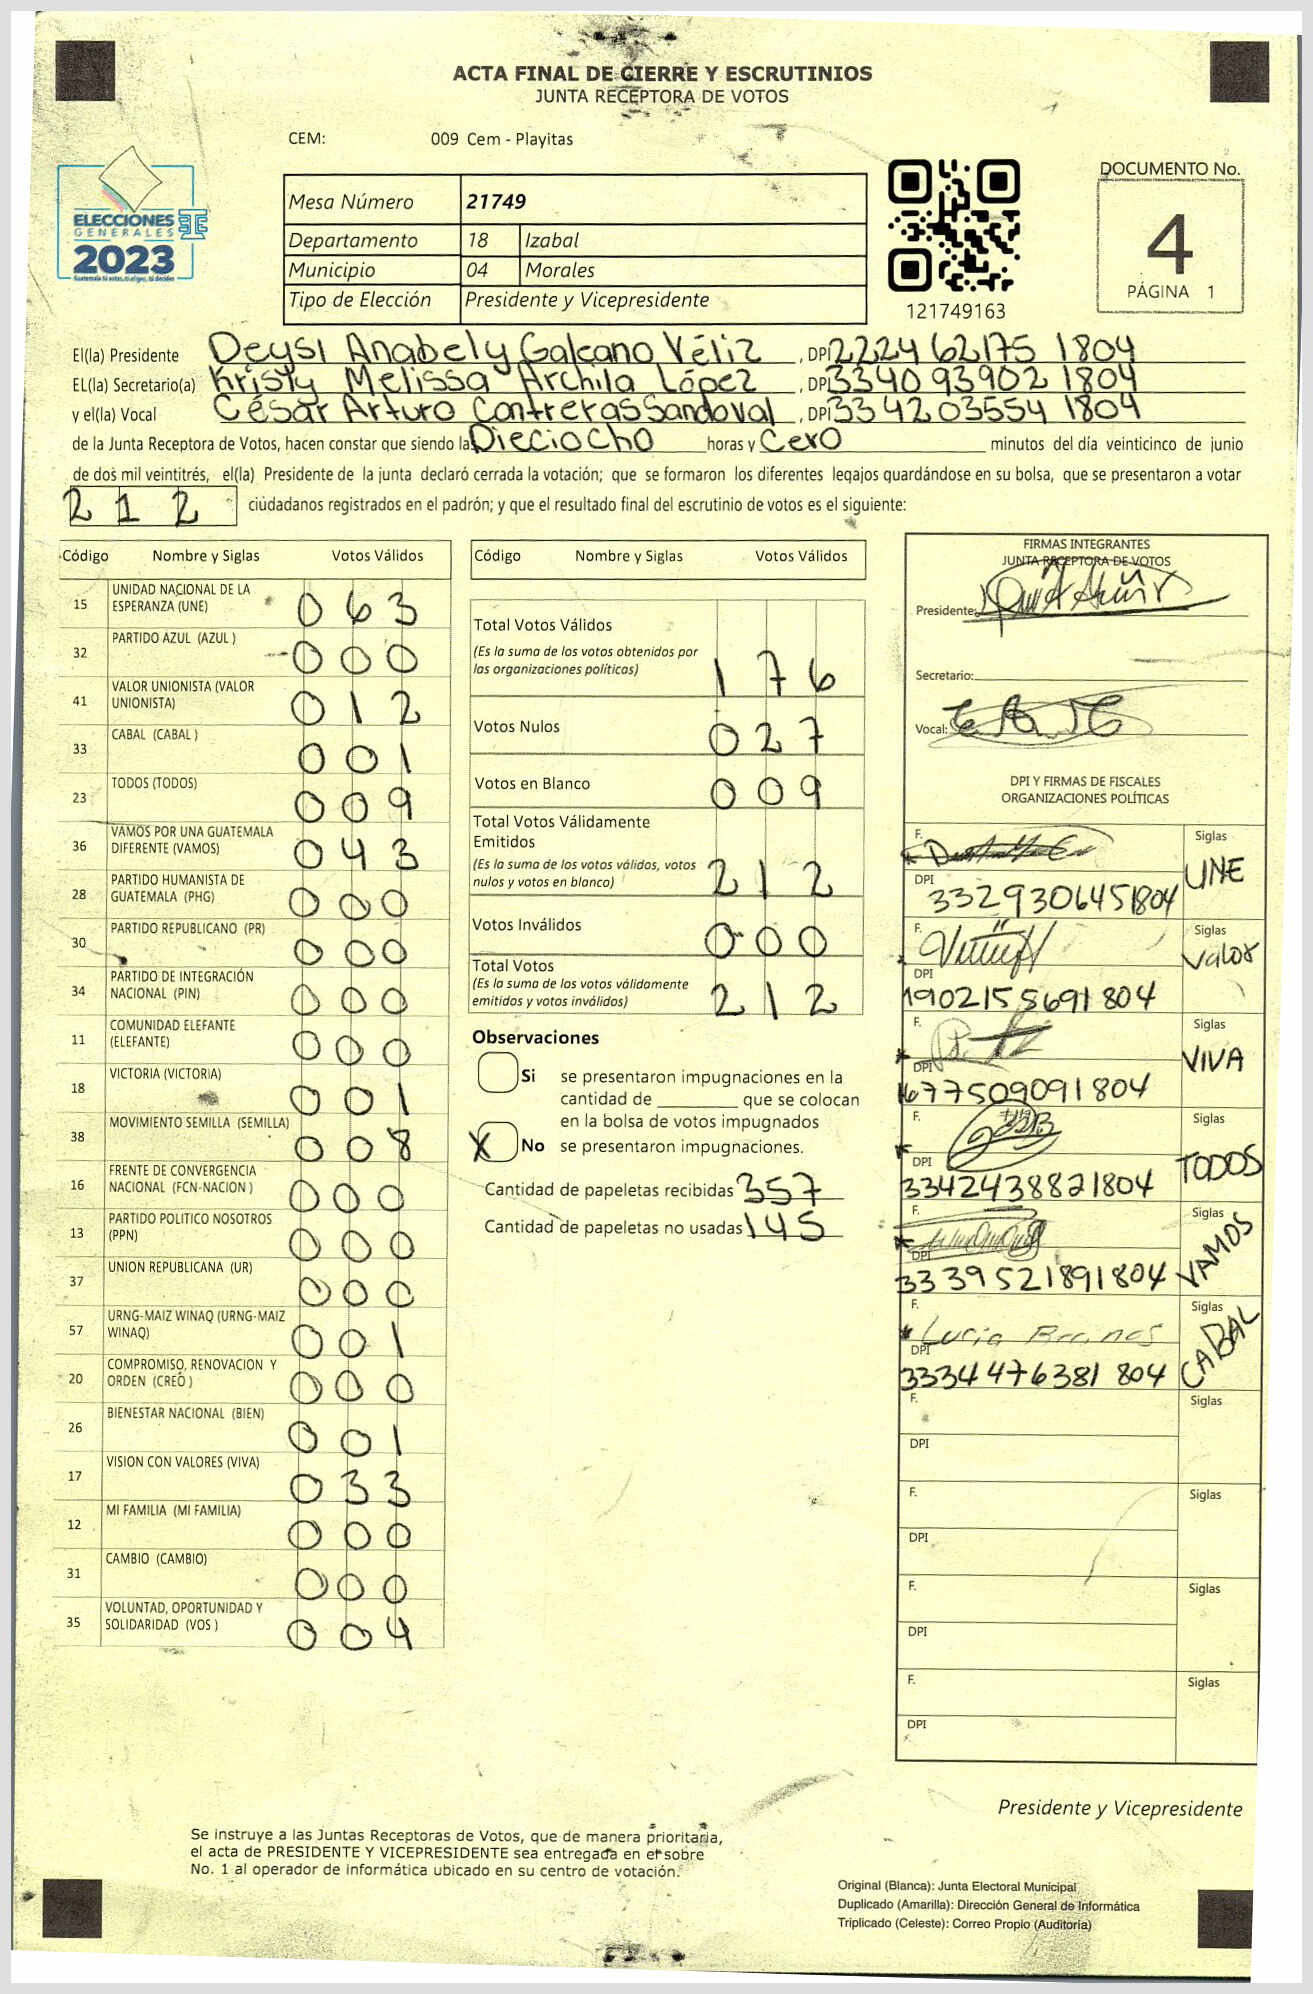 ACTA FINAL DE CIERRE Y ESCRUTINIOS
JUNTA RECEPTORA DE VOTOS
CEM: 009 Cem - Playitas
ELECCIONES
GENERALES
2023
Guatemala tú votas, tú eliges, tú decides
Mesa Número 21749
Departamento 18 Izabal
Municipio 04 Morales
Tipo de Elección Presidente y Vicepresidente
121749163
DOCUMENTO No.
4
PÁGINA 1
El(la) Presidente Deysi Anabely Galeano Véliz , DPI 2224 62175 1804
EL(la) Secretario(a) Kristy Melissa Archila López , DPI 3340 93902 1804
y el(la) Vocal César Arturo Contreras Sandoval , DPI 3342 03554 1804
de la Junta Receptora de Votos, hacen constar que siendo las Dieciocho horas y Cero minutos del día veinticinco de junio
de dos mil veintitrés, el(la) Presidente de la junta declaró cerrada la votación; que se formaron los diferentes legajos guardándose en su bolsa, que se presentaron a votar
212 ciudadanos registrados en el padrón; y que el resultado final del escrutinio de votos es el siguiente:
Código Nombre y Siglas Votos Válidos
15 UNIDAD NACIONAL DE LA ESPERANZA (UNE) 063
32 PARTIDO AZUL (AZUL ) 000
41 VALOR UNIONISTA (VALOR UNIONISTA) 012
33 CABAL (CABAL ) 001
23 TODOS (TODOS) 009
36 VAMOS POR UNA GUATEMALA DIFERENTE (VAMOS) 043
28 PARTIDO HUMANISTA DE GUATEMALA (PHG) 000
30 PARTIDO REPUBLICANO (PR) 000
34 PARTIDO DE INTEGRACIÓN NACIONAL (PIN) 000
11 COMUNIDAD ELEFANTE (ELEFANTE) 000
18 VICTORIA (VICTORIA) 001
38 MOVIMIENTO SEMILLA (SEMILLA) 008
16 FRENTE DE CONVERGENCIA NACIONAL (FCN-NACION ) 000
13 PARTIDO POLITICO NOSOTROS (PPN) 000
37 UNION REPUBLICANA (UR) 000
57 URNG-MAIZ WINAQ (URNG-MAIZ WINAQ) 001
20 COMPROMISO, RENOVACION Y ORDEN (CREO ) 000
26 BIENESTAR NACIONAL (BIEN) 001
17 VISION CON VALORES (VIVA) 033
12 MI FAMILIA (MI FAMILIA) 000
31 CAMBIO (CAMBIO) 000
35 VOLUNTAD, OPORTUNIDAD Y SOLIDARIDAD (VOS ) 004
Código Nombre y Siglas Votos Válidos
Total Votos Válidos
(Es la suma de los votos obtenidos por
las organizaciones políticas) 176
Votos Nulos 027
Votos en Blanco 009
Total Votos Válidamente
Emitidos
(Es la suma de los votos válidos, votos
nulos y votos en blanco) 212
Votos Inválidos 000
Total Votos
(Es la suma de los votos válidamente
emitidos y votos inválidos) 212
Observaciones
Si se presentaron impugnaciones en la
cantidad de ________ que se colocan
en la bolsa de votos impugnados
X No se presentaron impugnaciones.
Cantidad de papeletas recibidas 357
Cantidad de papeletas no usadas 145
FIRMAS INTEGRANTES
JUNTA RECEPTORA DE VOTOS
Presidente:
Secretario:
Vocal:
DPI Y FIRMAS DE FISCALES
ORGANIZACIONES POLÍTICAS
F. Siglas
DPI 3329306451804 UNE
F. Siglas
DPI 1902155691804 Valor
F. Siglas
DPI 1677509091804 VIVA
F. Siglas
DPI 3342438821804 TODOS
F. Siglas
DPI 3339521891804 VAMOS
F. Lucia Siglas
DPI 3334476381804 CABAL
F. Siglas
DPI
F. Siglas
DPI
F. Siglas
DPI
F. Siglas
DPI
Presidente y Vicepresidente
Se instruye a las Juntas Receptoras de Votos, que de manera prioritaria,
el acta de PRESIDENTE Y VICEPRESIDENTE sea entregada en el sobre
No. 1 al operador de informática ubicado en su centro de votación.
Original (Blanca): Junta Electoral Municipal
Duplicado (Amarilla): Dirección General de Informática
Triplicado (Celeste): Correo Propio (Auditoría)